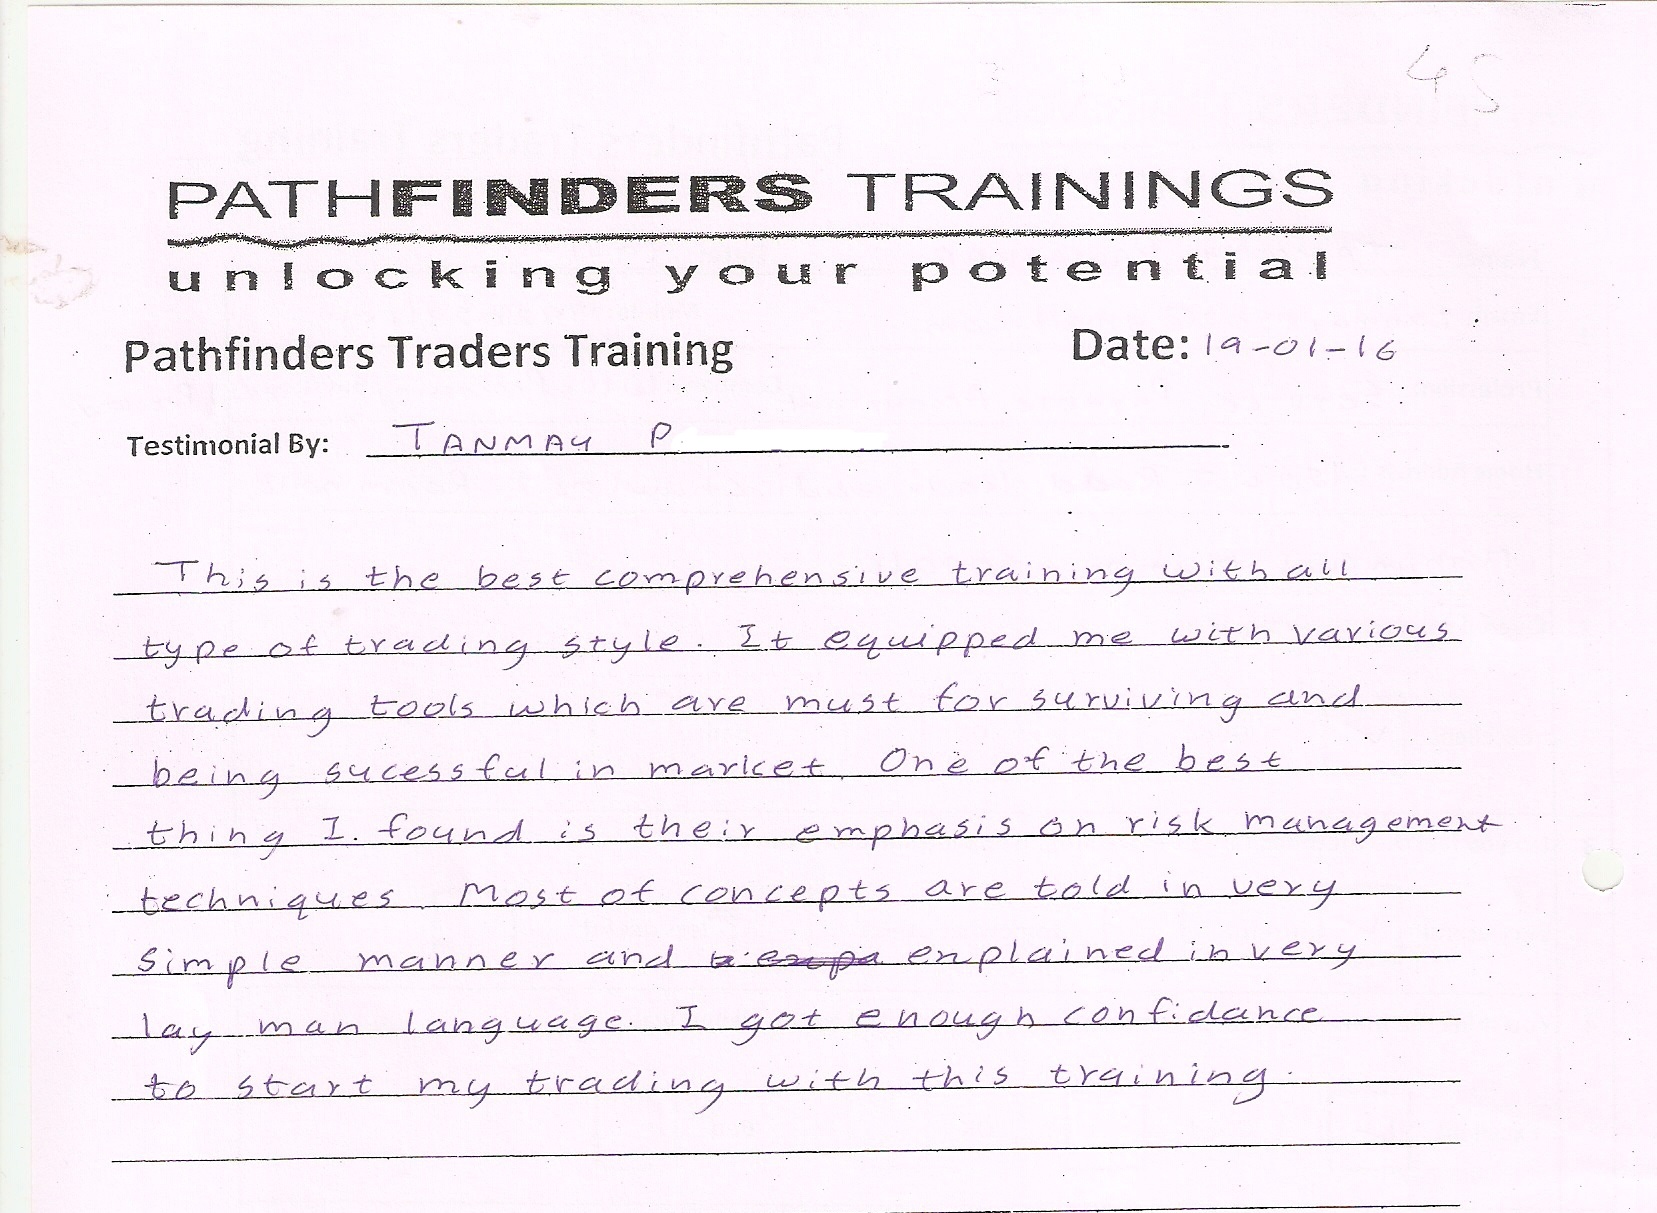 45
PATHFINDERS TRAININGS
unlocking your potential
Pathfinders Traders Training Date: 19-01-16
Testimonial By: TANMAY P
This is the best comprehensive training with all
type of trading style. It equipped me with various
trading tools which are must for surviving and
being sucessful in market. One of the best
thing I found is their emphasis on risk management
techniques. Most of concepts are told in very
simple manner and explained in very
lay man language. I got enough confidance
to start my trading with this training.